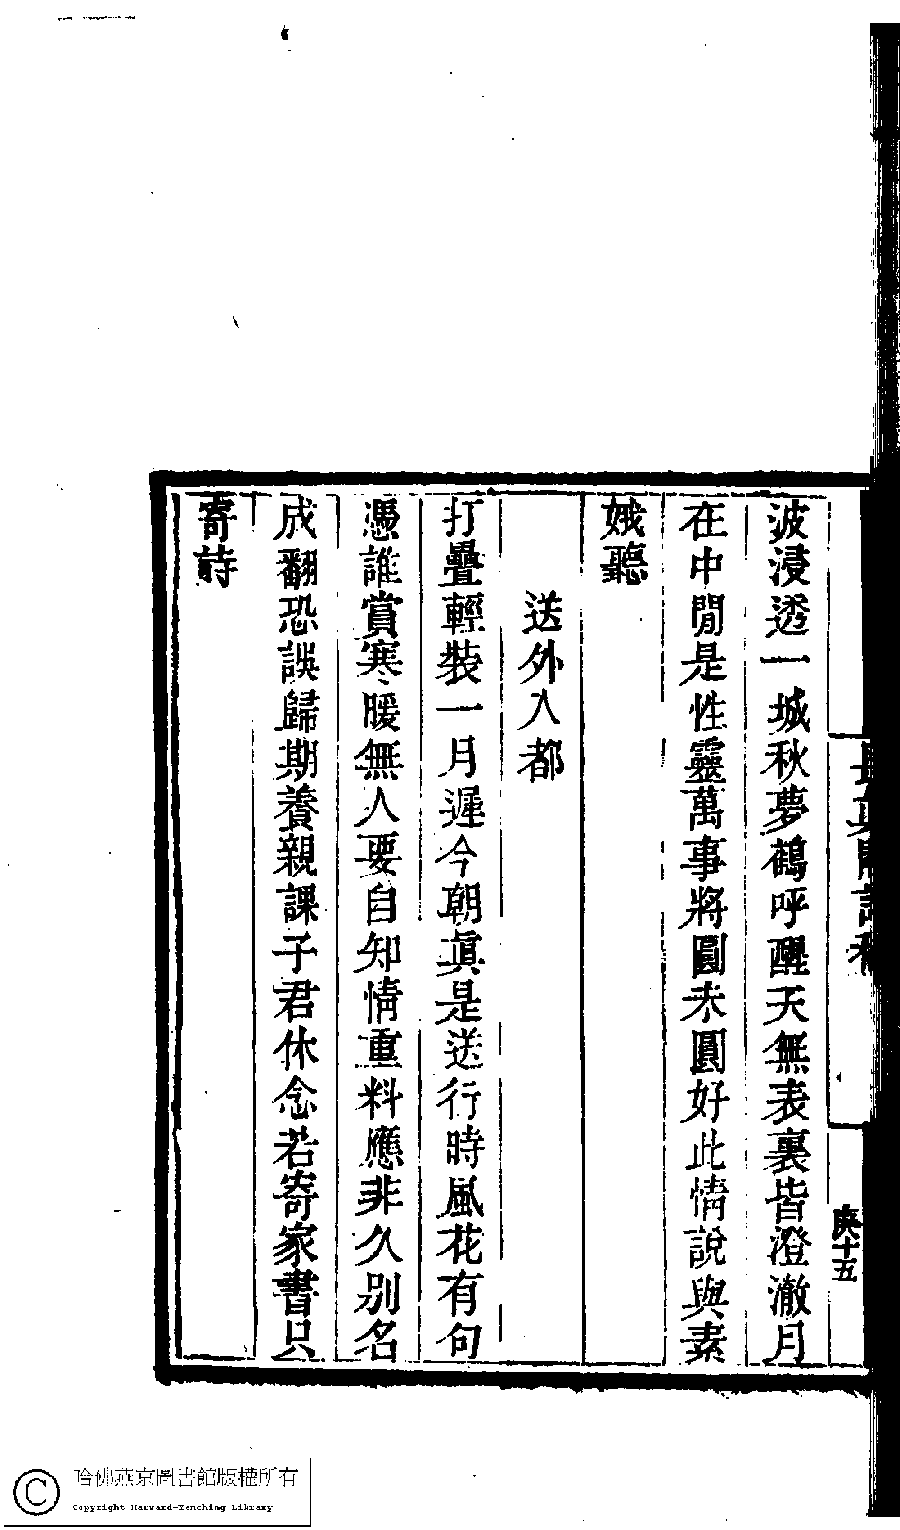 波浸透一城秋夢鶴呼醒天無表裏皆澄澈月
在中閒是性靈萬事將圓未圓好此情說與素
娥聽
送外入都
打疊輕裝一月遲今朝眞是送行時風花有句
憑誰賞寒暖無人要自知情重料應非久別名
成翻恐誤歸期養親課子君休念若寄家書只
寄詩
庚十五
哈佛燕京圖書館版權所有
Copyright Harvard-Yenching Library